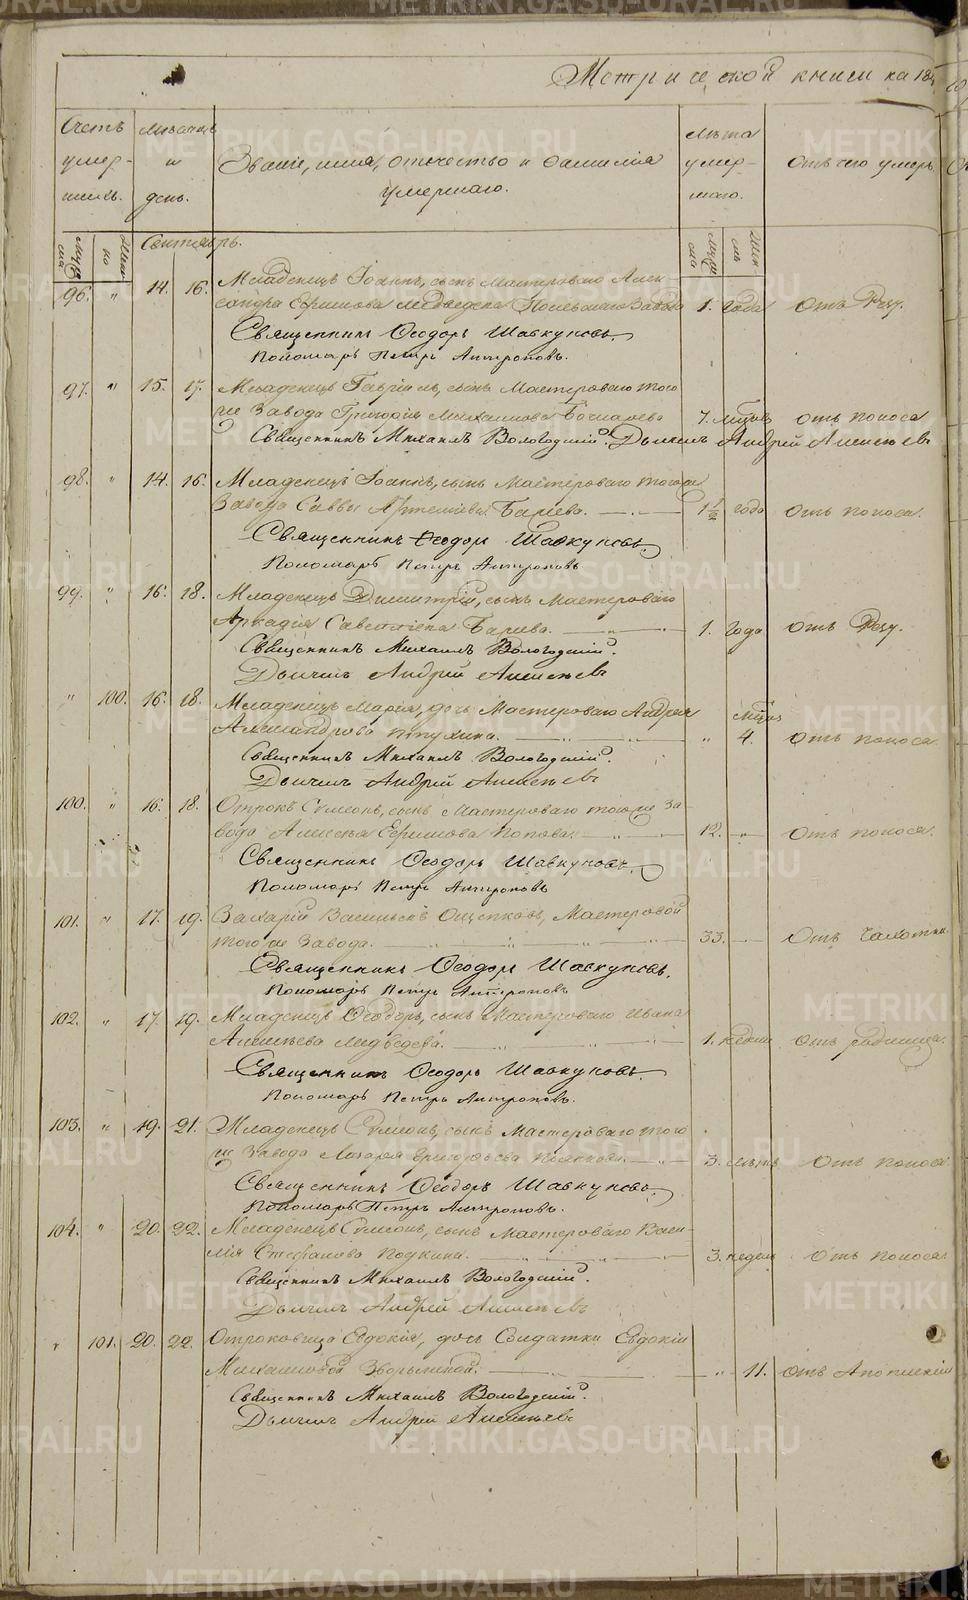 Метрической книги на 18
Счетъ умер- шихъ.
Мѣсяцъ и день.
Званіе, имя, отечество и фамилія умершаго.
Лѣта умер- шаго.
Отъ чего умеръ.
Муж. Жен.
Сентябрь.
96. " 14. 16. Младенецъ Іоаннъ, сынъ Мастероваго Алек-
сандра Ефимова Медведева Полевскаго Завода 1. года Отъ Рezу.
Священникъ Ѳеодоръ Шавкуновъ.
Пономарь Петръ Антроповъ.
97. " 15. 17. Младенецъ Гавріилъ, сынъ Мастероваго того
же Завода Григорія Михаилова 7. мѣсяц. отъ поноса
Священникъ Михаилъ Вологодскій. Дьячекъ Андрей Алексѣевъ
98. " 14. 16. Младенецъ Іоаннъ, сынъ Мастероваго тогоже
Завода Саввы Артемьева Бариева. 1 1/2 года отъ поноса.
Священникъ Ѳеодоръ Шавкуновъ.
Пономарь Петръ Антроповъ
99. " 16. 18. Младенецъ Димитрій, сынъ Мастероваго
Аркадія Савельева Бариева. 1. года отъ
Священникъ Михаилъ Вологодскій.
Дьячекъ Андрей Алексѣевъ
" 100. 16. 18. Младенецъ Марія, дочь Мастероваго Андрея
Александрова Птухина. " 4. мѣсяц. отъ поноса.
Священникъ Михаилъ Вологодскій.
Дьячекъ Андрей Алексѣевъ
100. " 16. 18. Отрокъ Сѵмеонъ, сынъ Мастероваго тогоже За-
вода Алексѣя Ефимова Попова. 12. " отъ поноса.
Священникъ Ѳеодоръ Шавкуновъ.
Пономарь Петръ Антроповъ
101. " 17. 19. Захарій Васильевъ Ощепковъ, Мастеровой
того же Завода. 33. Отъ Чахотки
Священникъ Ѳеодоръ Шавкуновъ.
Пономарь Петръ Антроповъ
102. " 17. 19. Младенецъ Ѳеодоръ, сынъ Мастероваго Ивана
Алексѣева Медведева. 1. недели Отъ родимца.
Священникъ Ѳеодоръ Шавкуновъ.
Пономарь Петръ Антроповъ.
103. " 19. 21. Младенецъ Сѵмеонъ, сынъ Мастероваго того
же Завода Лазаря Григорьева 3. лѣтъ Отъ поноса
Священникъ Ѳеодоръ Шавкуновъ.
Пономарь Петръ Антроповъ.
104. " 20. 22. Младенецъ Сѵмеонъ, сынъ Мастероваго Васи-
лія Стефанова 3. недели Отъ поноса
Священникъ Михаилъ Вологодскій.
Дьячекъ Андрей Алексѣевъ
" 101. 20. 22. Отроковица Евдокія, дочь Солдатки Евдокіи
Михаиловой " 11. отъ Апоплексіи
Священникъ Михаилъ Вологодскій.
Дьячекъ Андрей Алексѣевъ
METRIKI.GASO-URAL.RU